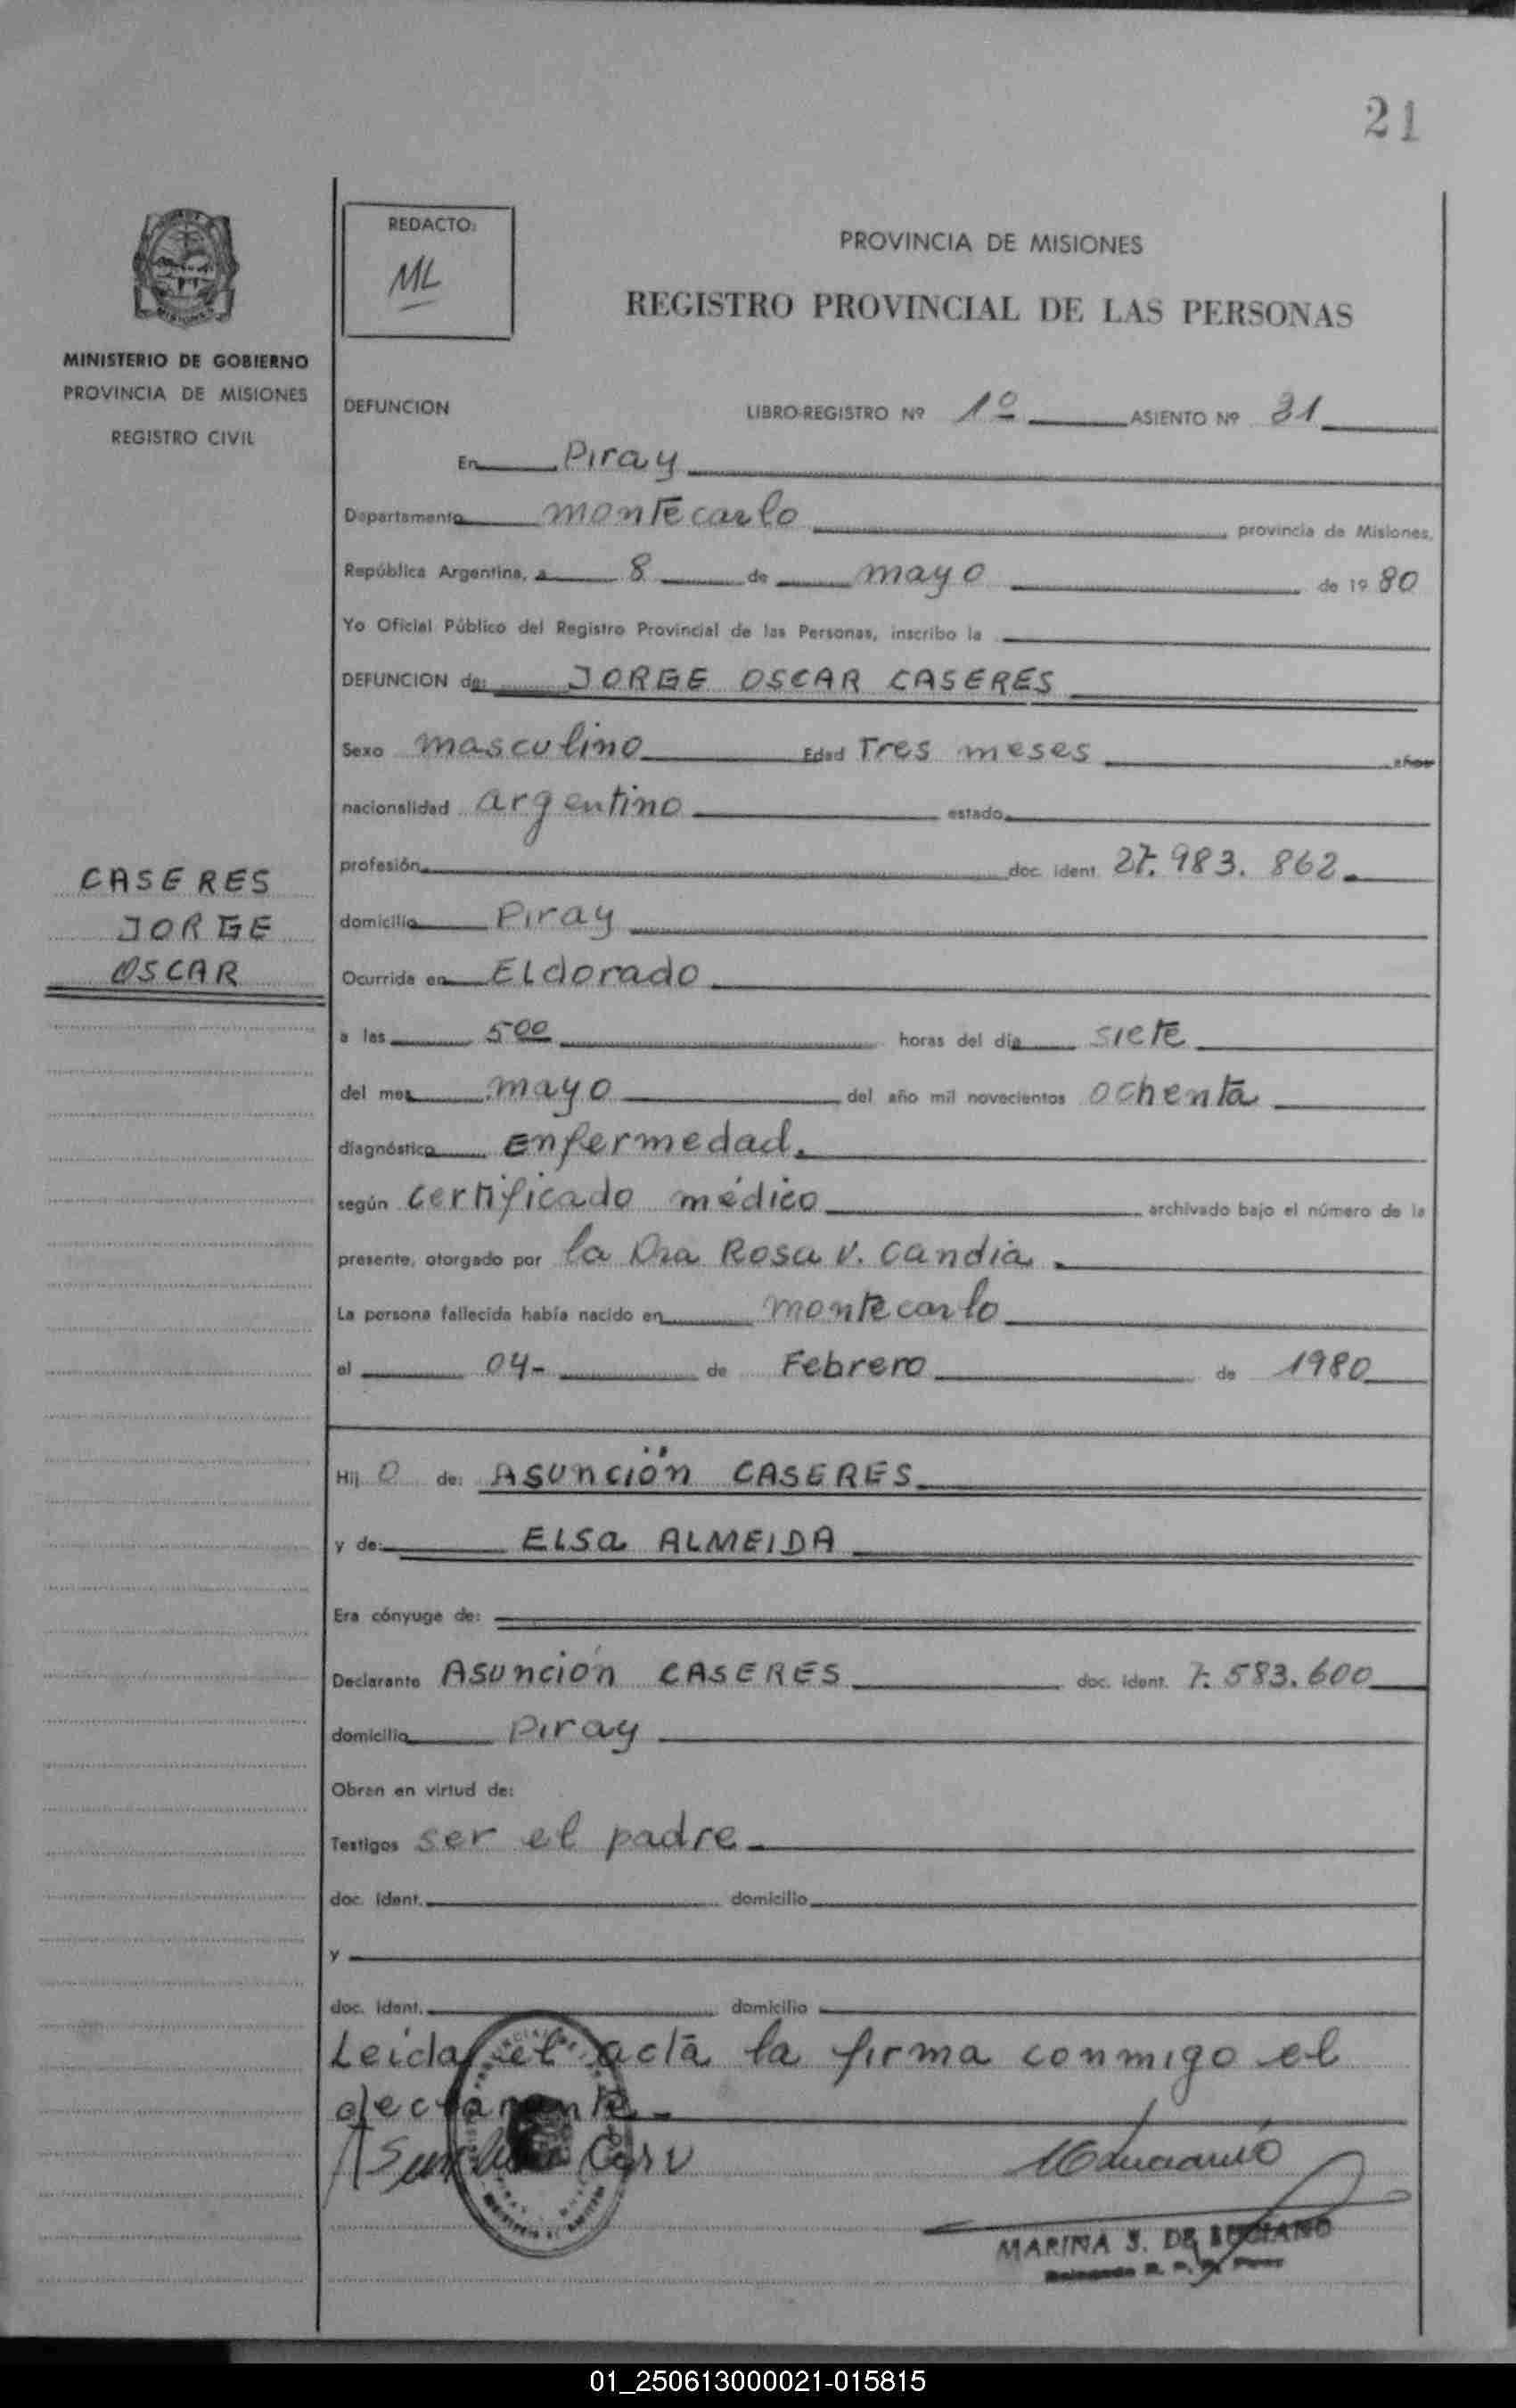 21
REDACTO:
ML
PROVINCIA DE MISIONES
REGISTRO PROVINCIAL DE LAS PERSONAS
MINISTERIO DE GOBIERNO
PROVINCIA DE MISIONES
REGISTRO CIVIL
DEFUNCION LIBRO-REGISTRO Nº 1º ASIENTO Nº 31
En Piray
Departamento montecarlo provincia de Misiones,
República Argentina, a 8 de mayo de 1980
Yo Oficial Público del Registro Provincial de las Personas, inscribo la
DEFUNCION de: JORGE OSCAR CASERES
Sexo masculino Edad Tres meses años
nacionalidad argentino estado
profesión doc. ident. 27.983.862.
CASERES
JORGE
OSCAR
domicilio Piray
Ocurrida en ELdorado
a las 500 horas del día siete
del mes mayo del año mil novecientos ochenta
diagnóstico Enfermedad.
según certificado médico archivado bajo el número de la
presente, otorgado por la Dra Rosa V. Candia.
La persona fallecida había nacido en montecarlo
el 04- de Febrero de 1980
Hij O de: Asunción CASERES
y de: ELSa ALMEIDA
Era cónyuge de:
Declarante Asunción CASERES doc. ident. 7.583.600
domicilio Piray
Obran en virtud de:
Testigos ser el padre
doc. ident. domicilio
y
doc. ident. domicilio
Leida el acta la firma conmigo el
declarante
MARINA S. DE LUCIANO
01_250613000021-015815